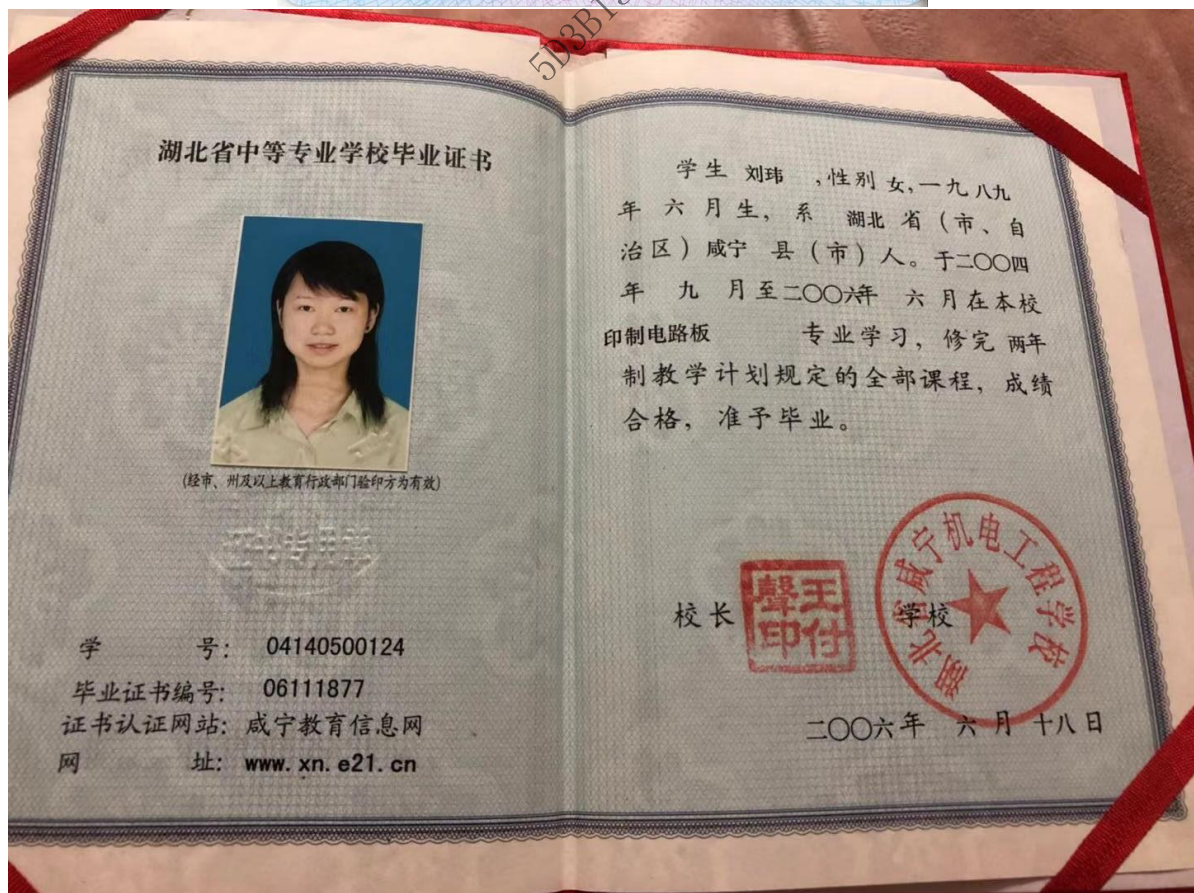 5D3B1
湖北省中等专业学校毕业证书
(经市、州及以上教育行政部门验印方为有效)
证书专用章
学 号: 04140500124
毕业证书编号: 06111877
证书认证网站: 咸宁教育信息网
网 址: www.xn.e21.cn
学生 刘玮 ,性别 女,一九八九
年 六 月生, 系 湖北 省 (市、自
治区) 咸宁 县 (市) 人。于二〇〇四
年 九 月至二〇〇六年 六 月在本校
印制电路板 专业学习, 修完 两年
制教学计划规定的全部课程, 成绩
合格, 准予毕业。
校长
王付聲印
学校
湖北省咸宁机电工程学校
二〇〇六年 六 月 十八 日